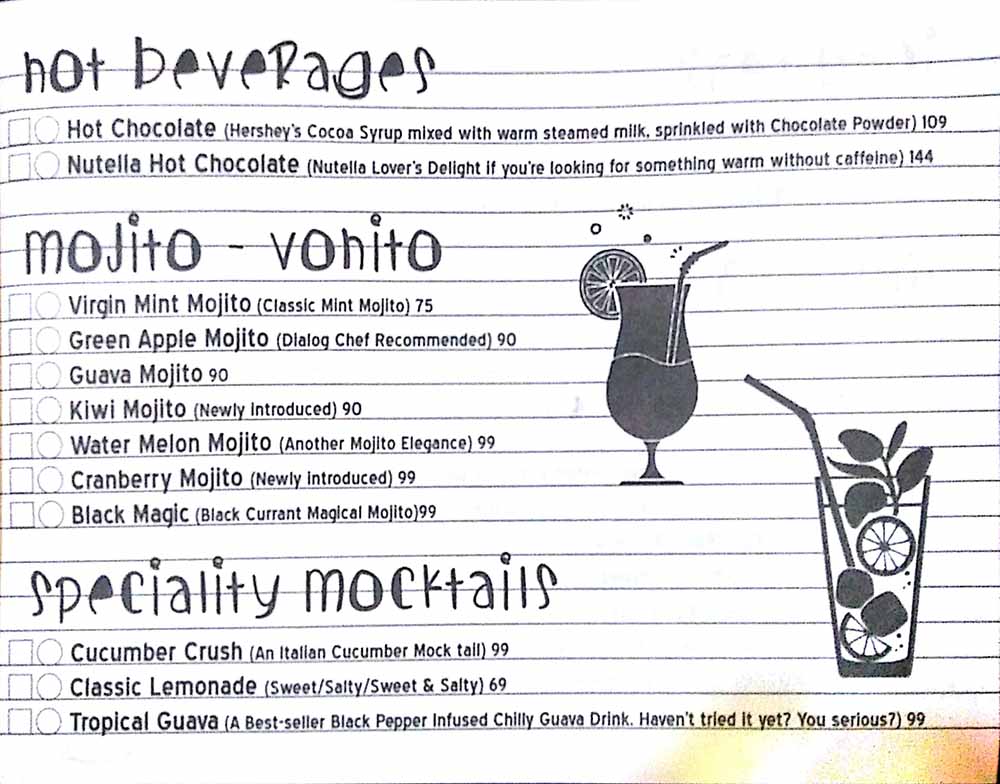 hot beverages
Hot Chocolate (Hershey's Cocoa Syrup mixed with warm steamed milk, sprinkled with Chocolate Powder) 109
Nutella Hot Chocolate (Nutella Lover's Delight if you're looking for something warm without caffeine) 144
mojito - vohito
Virgin Mint Mojito (Classic Mint Mojito) 75
Green Apple Mojito (Dialog Chef Recommended) 90
Guava Mojito 90
Kiwi Mojito (Newly Introduced) 90
Water Melon Mojito (Another Mojito Elegance) 99
Cranberry Mojito (Newly introduced) 99
Black Magic (Black Currant Magical Mojito)99
speciality mocktails
Cucumber Crush (An Italian Cucumber Mock tail) 99
Classic Lemonade (Sweet/Salty/Sweet & Salty) 69
Tropical Guava (A Best-seller Black Pepper Infused Chilly Guava Drink. Haven't tried it yet? You serious?) 99